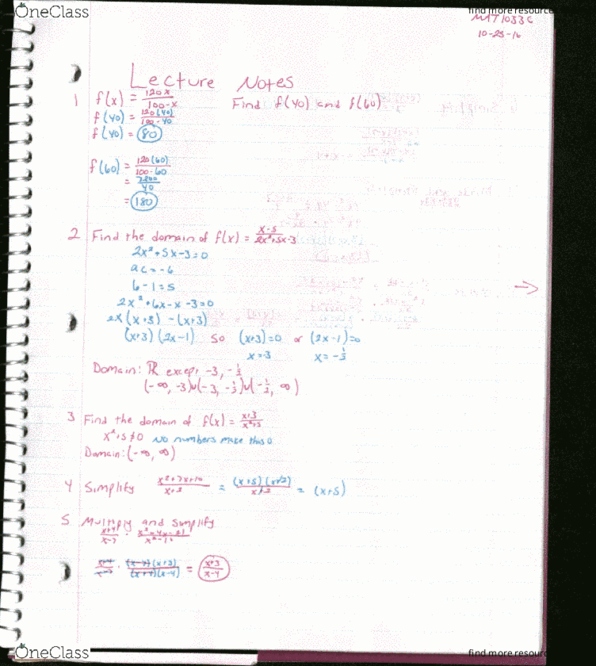 OneClass
find more resour
MAT1033C
10-25-16
Lecture Notes
1 f(x) = 120x / 100-x Find f(40) and f(60)
f(40) = 120(40) / 100-40
f(40) = 80
f(60) = 120(60) / 100-60
= 7200 / 40
= 180
2 Find the domain of f(x) = x-5 / 2x²+5x-3
2x²+5x-3=0
ac=-6
6-1=5
2x²+6x-x-3=0
2x(x+3) -(x+3)
(x+3)(2x-1) so (x+3)=0 or (2x-1)=0
x=-3 x=-½
Domain: ℝ except -3, -½
(-∞, -3)∪(-3, -½)∪(-½, ∞)
3 Find the domain of f(x) = x+3 / x²+5
x²+5≠0 No numbers make this 0
Domain: (-∞, ∞)
4 Simplify x²+7x+10 / x+2 = (x+5)(x+2) / x+2 = (x+5)
5 Multiply and Simplify
x+4 / x-7 · x²-4x-21 / x²-16
x+4 / x-7 · (x-7)(x+3) / (x+4)(x-4) = x+3 / x-4
OneClass
find more resour